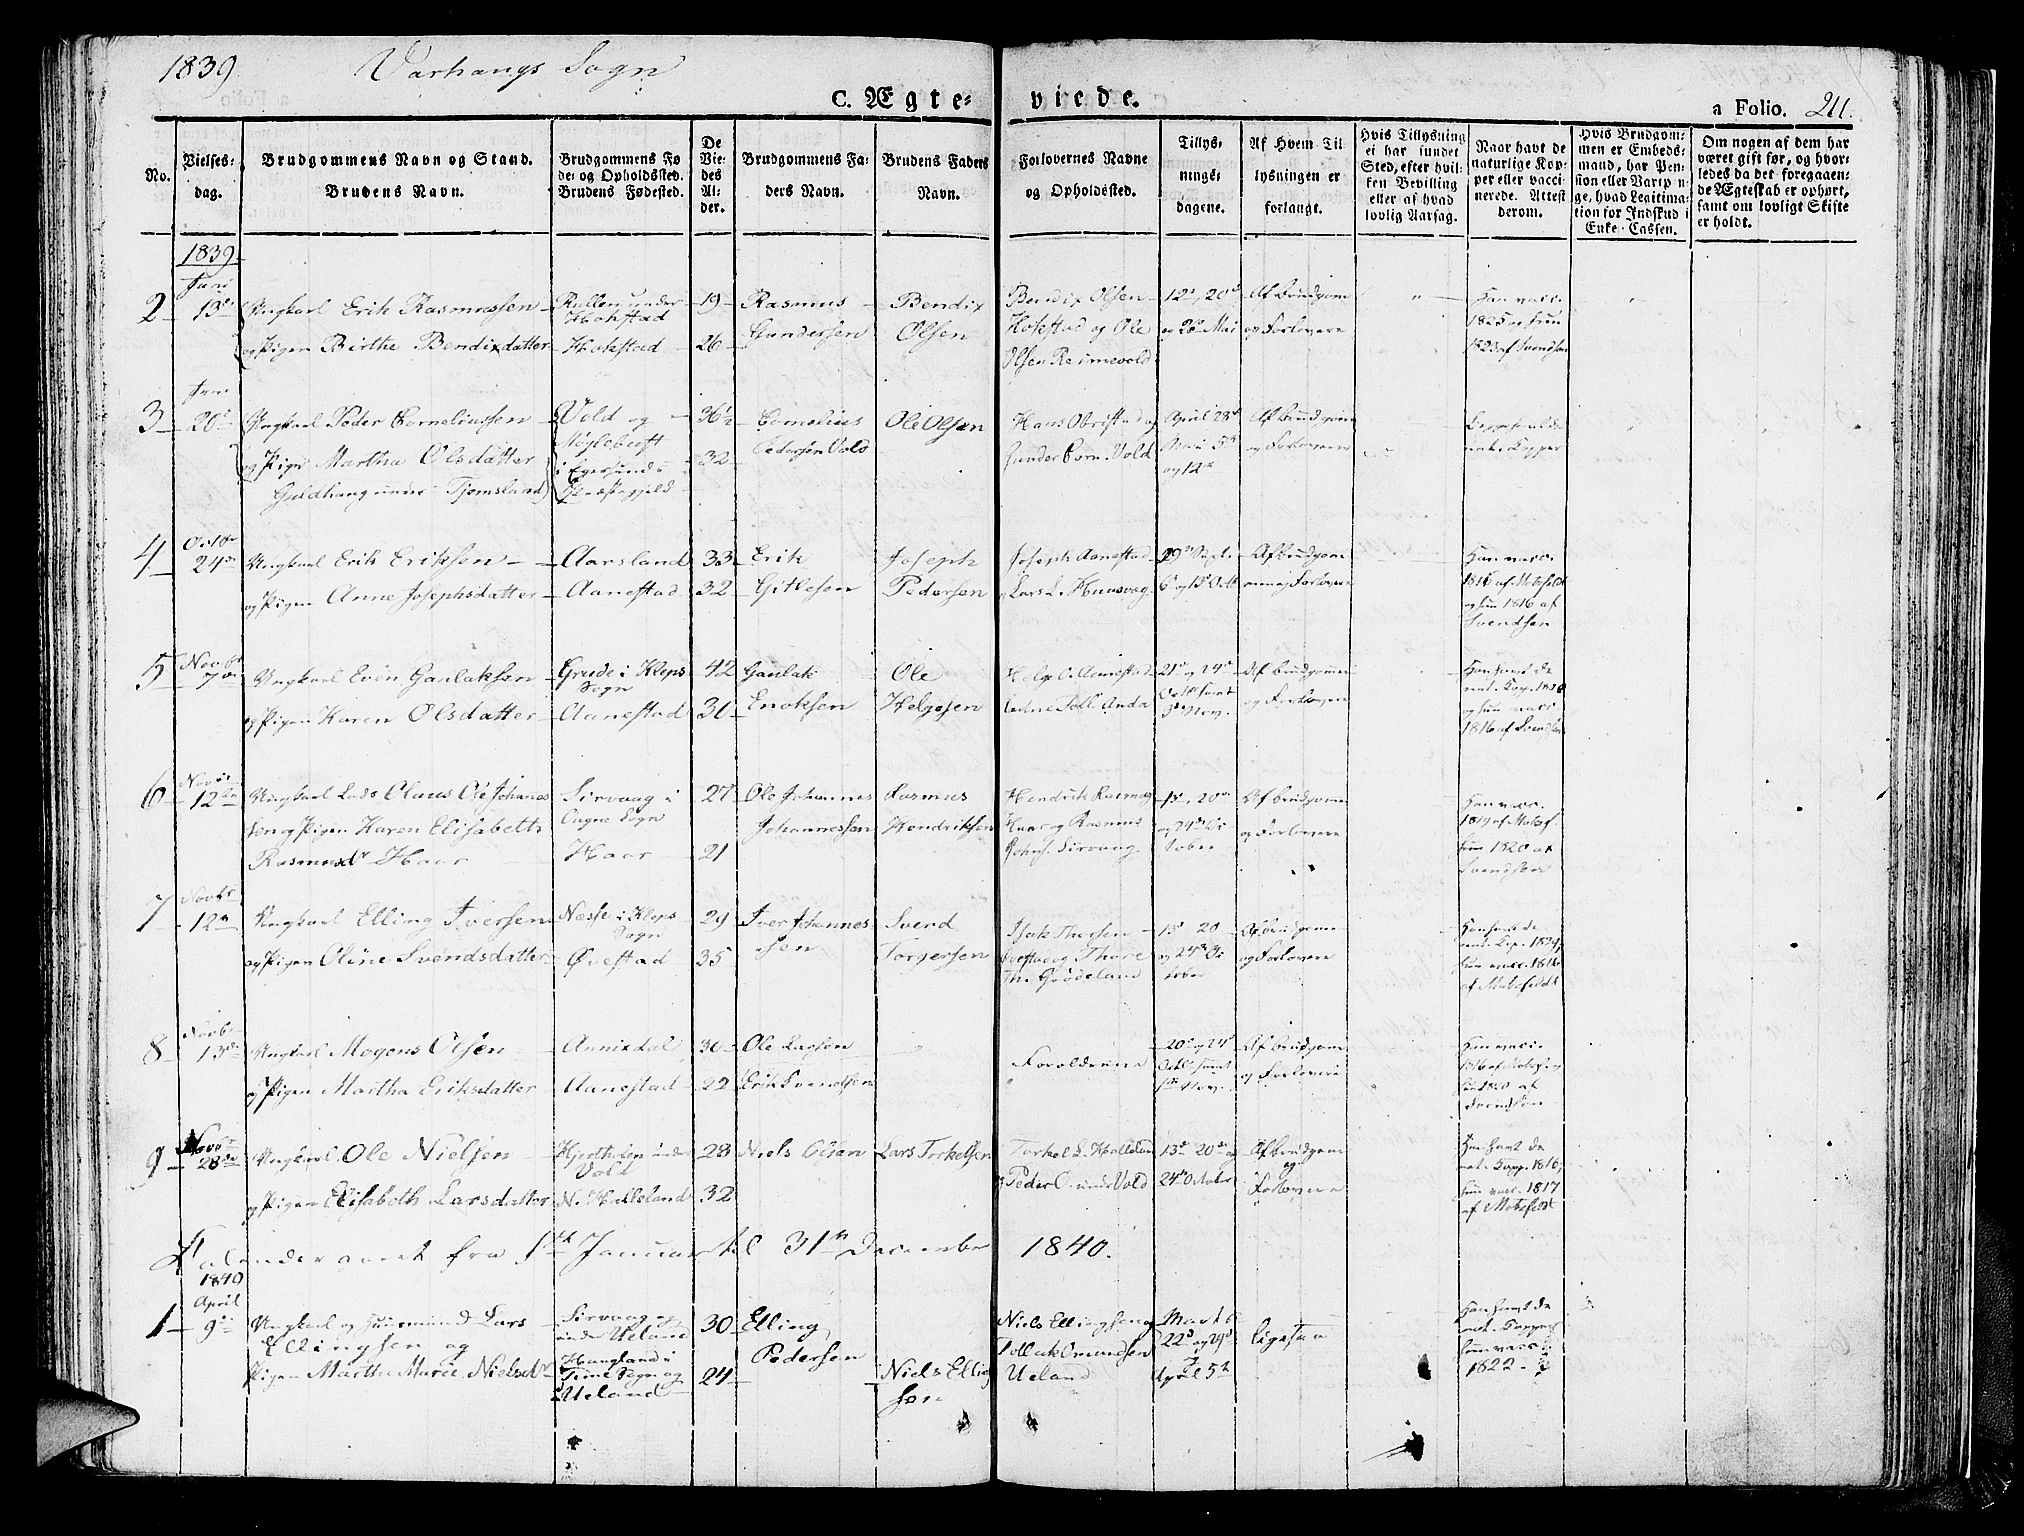 1839 Varhaugs Sogn
C. Ægte- viede. a Folio. 211.
No.
Vielses-
dag.
Brudgommens Navn og Stand.
Brudens Navn.
Brudgommens Fø
de- og Opholdssted.
Brudens Fødested.
De
Vie-
des
Al-
der.
Brudgommens Fa-
ders Navn.
Brudens Faders
Navn.
Forlovernes Navne
og Opholdssted.
Tillys-
nings-
dagene.
Af Hvem Til
lysningen er
forlangt.
Hvis Tillysning
ei har fundet
Sted, efter hvil-
ken Bevilling
eller af hvad
lovlig Aarsag.
Naar havt de
naturlige Kop-
per eller vacci
nerede. Attest
derom.
Hvis Brudgom-
men er Embeds-
mand, har Pen-
sion eller Vartp n-
ge, hvad Legitima-
tion for Indskud i
Enke-Cassen.
Om nogen af dem har
været gift før, og hvor-
ledes da det foregaaen-
de Ægteskab er ophørt,
samt om lovligt Skifte
er holdt.
1839.
2 Juni 13de
Ungkarl Erik Rasmussen
og Pigen Birthe Bendixdatter
Kullen under
Hobstad
Hobstad
19
26
Rasmus
Gundersen
Bendix
Olsen
Bendix Olsen
Hobstad og Ole
Olsen Reimevold
12te, 20de
og 26de Mai
Af Brudgom
og Forlovere
Han vacc.
1825 og hun
1823 af Svendsen
3 Juni 20de
Ungkarl Peder Corneliussen
og Pigen Martha Olsdatter
Guldhaug under Tjemsland
Vold og
Nøglebust
i Egersunds
Præstegjeld
36½
32
Cornelius
Pedersen Vold
Ole Olsen
Hans Obrestad og
Gunder Corn. Vold
April 28de
Mai 5te
og 12te
Af Brudgom
og Forlovere
4 Octbr 24de
Ungkarl Erik Eriksen
og Pigen Anne Josephsdatter
Aarsland
Aanestad
33
32
Erik
Gitlesen
Joseph
Pedersen
Joseph Aanestad
Lars L. Huusveg
29de Sept.
6te og 13de Octb
Af Brudgom
men og Forlovere
Han vacc.
1816 af Motzfeldt
og hun 1816 af
Svendsen
5 Novbr 7de
Ungkarl Even Gaulaksen
og Pigen Karen Olsdatter
Grude i Kleps
Sogn
Aanestad
42
31
Gaulak
Enoksen
Ole
Helgesen
Helge O. Aanestad
21de og 24de
Octbr samt
3de Nov.
Af Brudgommen
og Forlovere
Han havt de
nat. Kop. 1830
og hun vacc.
1816 af Svendsen
6 Novbr 12te
Ungkarl Lods Claus Ole Johannes
sen og Pigen Karen Elisabeth
Rasmusdr Haar
Sirvaag i
Ougne Sogn
Haar
27
21
Ole Johannes
Johannessen
Rasmus
Hendriksen
Hendrik Rasmus
Haar og Rasmus
Johns. Sirvaag
13de, 20de
og 24de Oc
tober
Af Brudgom
og Forlovere
Han vacc.
1819 af Motzf.
hun 1820 af
Svendsen
7 Novbr 12te
Ungkarl Elling Iversen
og Pigen Oline Svendsdatter
Nesse i Kleps
Sogn
Øvestad
29
35
Iver Johannes
sen
Svend
Torgersen
Isak Thorsen
Øvestad og Thore
Th. Grødeland
13de 20
og 24de Oc
tober
Af Brudgom
og Forlovere
Han havt de
nat. Kop. 1824,
hun vacc. 1816
af Motzfeldt
8 Novbr 13de
Ungkarl Mogens Olsen
og Pigen Martha Eriksdatter
Annixdal
Aanestad
30
22
Ole Larsen
Erik Svendsen
Forældrene
20de og 24de
Octbr samt
Nov.
Af Brudgom
og Forlovere
Han vacc.
1816 af Motzf. og
hun 1820 af
Svendsen
9 Novbr 28de
Ungkarl Ole Nielsen
og Pigen Elisabeth Larsdatter
Hjertholen under
Vold
N. Halleland
28
32
Niels Olsen
Lars Torkelsen
Torkel L. Halleland
og Peder O. under Vold
13de 20de og
24de October
Af Brudgom
og
Forlovere
Han havt de
nat. Kopp. 1816,
hun vacc. 1817
af Motzfeldt
Kalenderaaret fra 1ste Januar til 31te December 1840.
1840
1 April 9de
Ungkarl og Huusmand Lars
Ellingsen og
Pigen Martha Marie Nielsdr
Sirvaag og
under Ueland
Haugland i
Time Sogn og
Ueland
30
24
Elling
Pedersen
Niels Elling
sen
Niels Ellingsen og
Tollak Omundsen
Ueland
Marts
22de og 29de
April 5te
ligesaa
Han havt de
nat. Kopper
hun vacc.
1822.